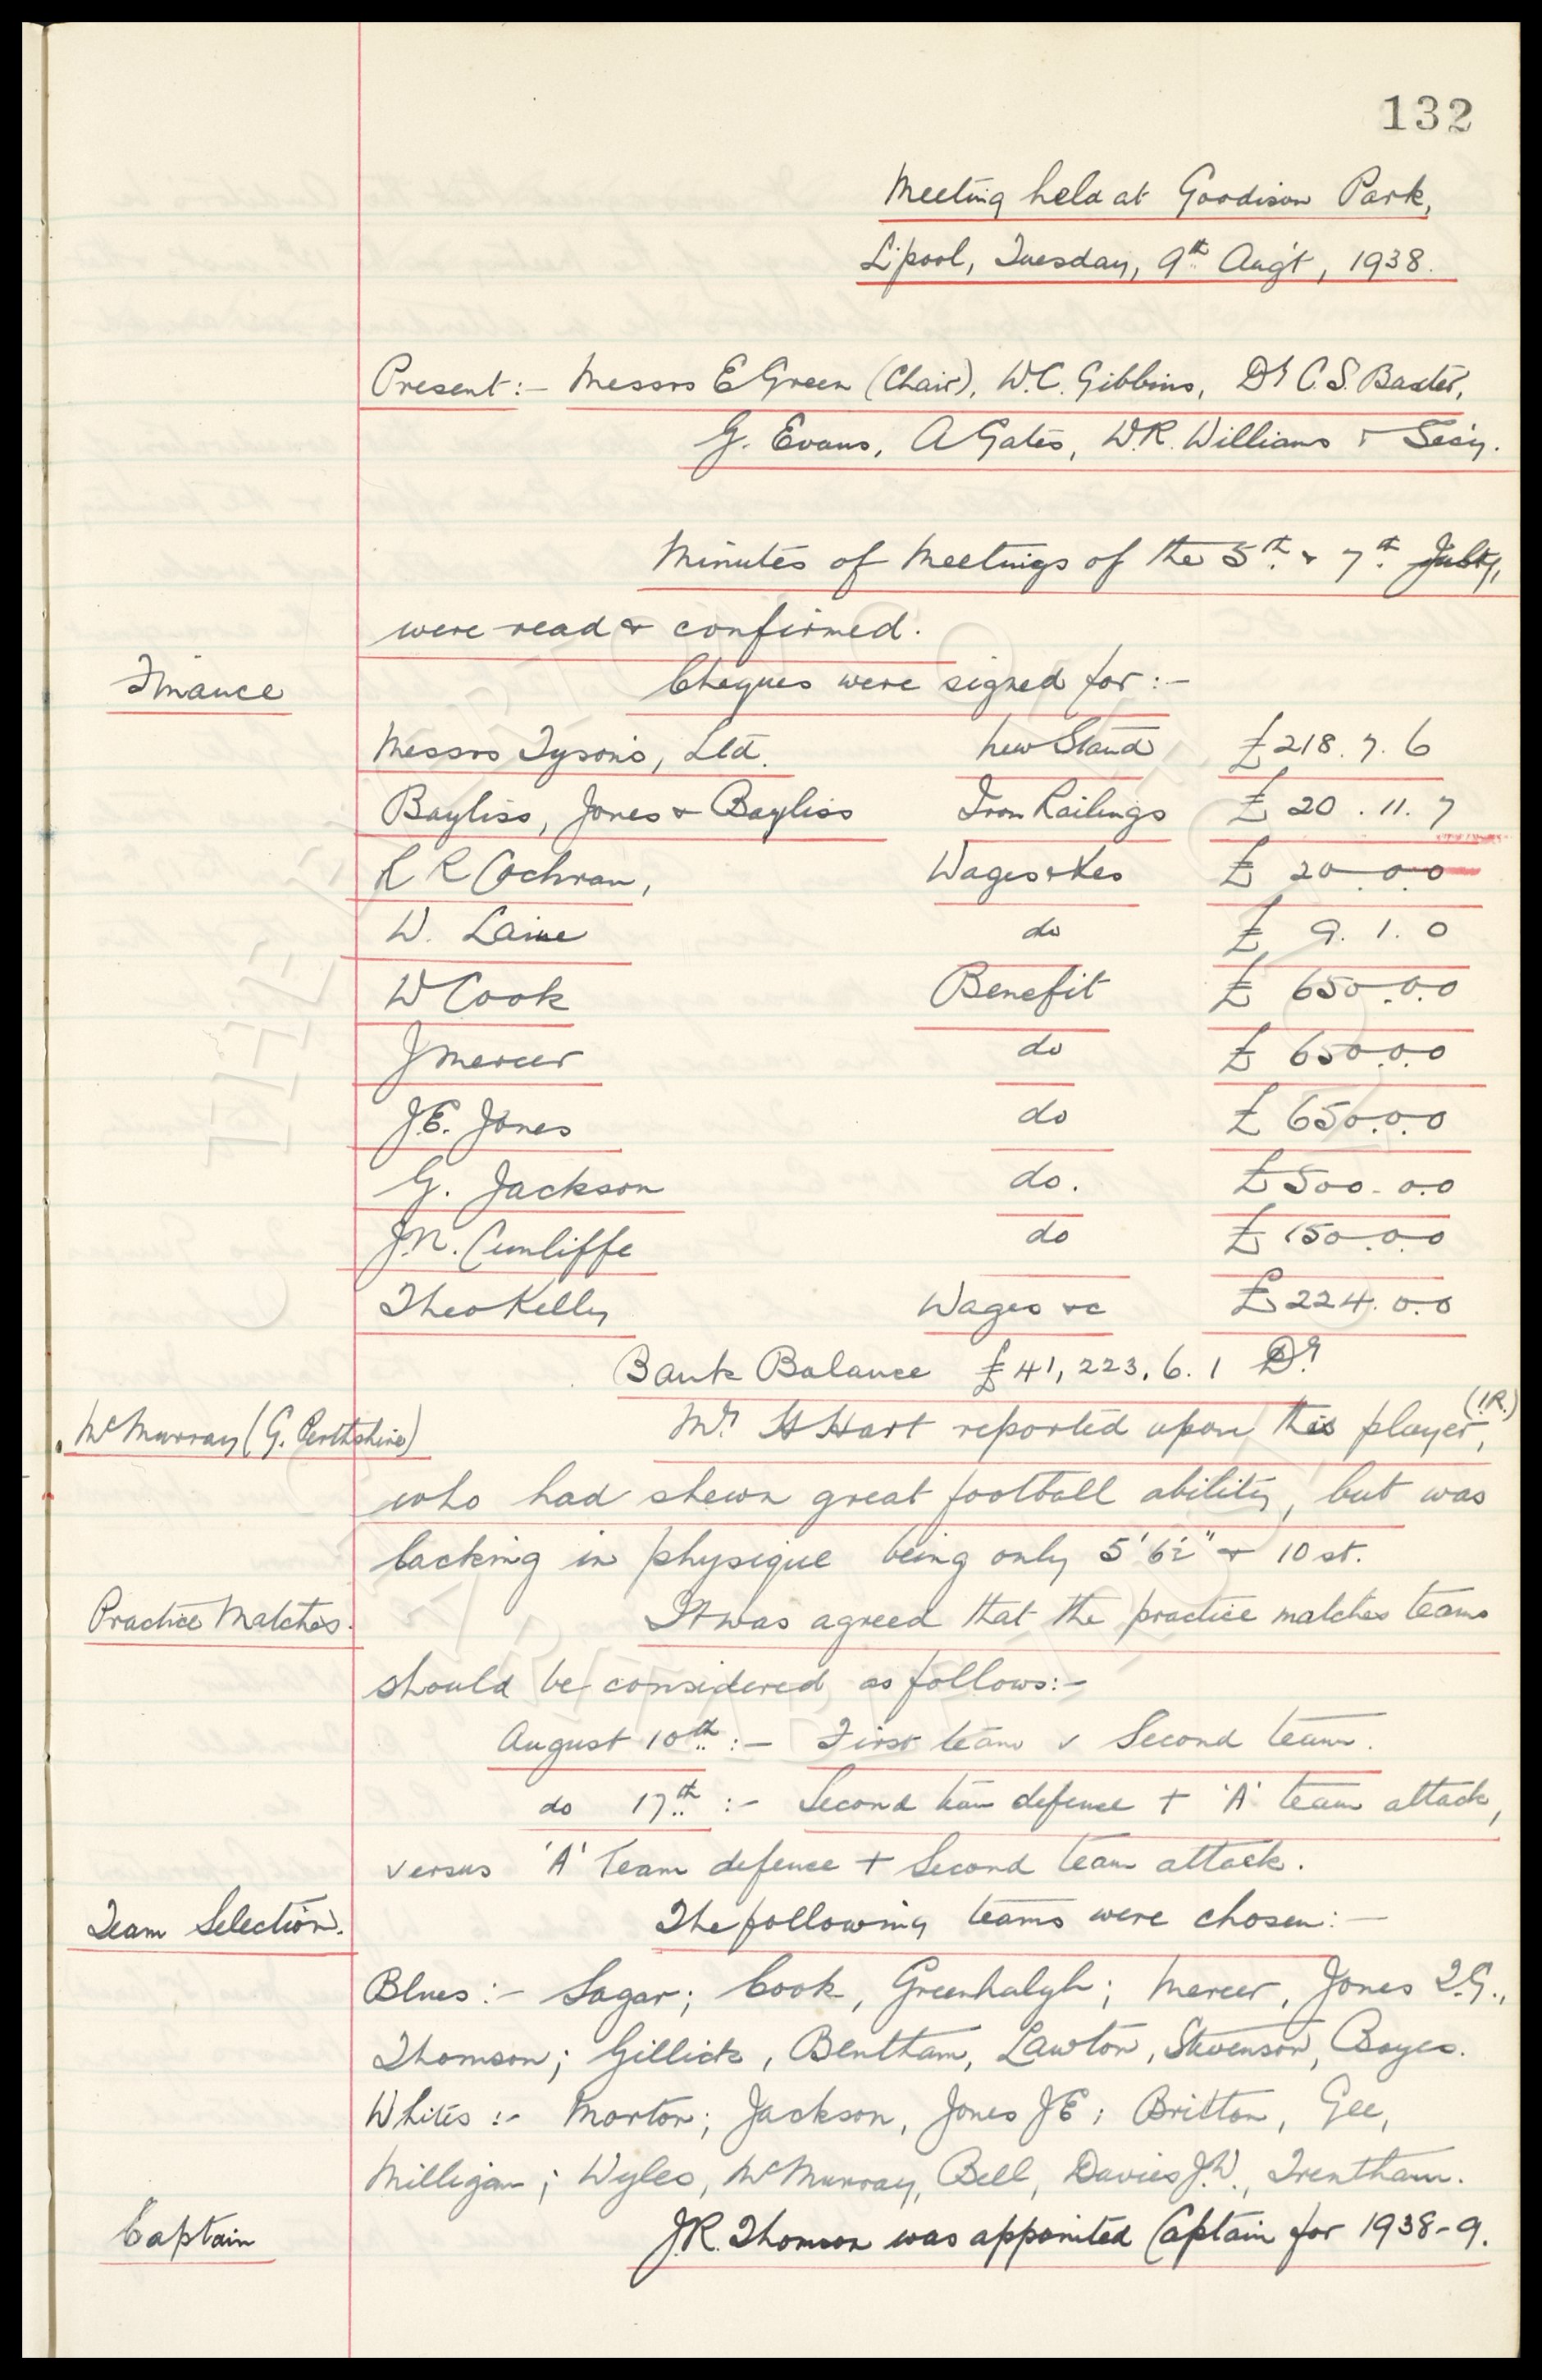 132
Meeting held at Goodison Park,
L'pool, Tuesday, 9th Aug't, 1938.
Present:- Messrs E Green (Chair), W.C. Gibbins, Dr C.S. Baxter,
G. Evans, A Gates, W.R. Williams & Sec'y.
Minutes of Meetings of the 5th & 7th July,
were read & confirmed.
Finance
Cheques were signed for:-
Messrs Tysons, Ltd. New Stand £218.7.6
Bayliss, Jones & Bayliss Iron Railings £20.11.7
Cochran, Wages £20.0.0
W. Laine do £9.1.0
W Cook Benefit £650.0.0
J Mercer do £650.0.0
J.E. Jones do £650.0.0
G. Jackson do. £500.0.0
J.N. Cunliffe do £150.0.0
Theo Kelly Wages &c £224.0.0
Bank Balance £41,223.6.1 Dr
McMurray (G. Perthshire) Mr H Hart reported upon this player (I.R.),
who had shewn great football ability, but was
lacking in physique being only 5'6½" & 10 st.
Practice Matches. It was agreed that the practice matches teams
should be considered as follows:-
August 10th:- First team v Second team.
do 17th:- Second team defense + 'A' team attack,
versus 'A' Team defence + Second team attack.
Team Selection. The following teams were chosen:-
Blues:- Sagar; Cook, Greenhalgh; Mercer, Jones T.G.,
Thomson; Gillick, Bentham, Lawton, Stevenson, Boyes.
Whites:- Morton; Jackson, Jones JE; Britton, Gee,
Milligan; Wyles, McMurray, Bell, Davies J.W., Trentham.
Captain J.R. Thomson was appointed Captain for 1938-9.